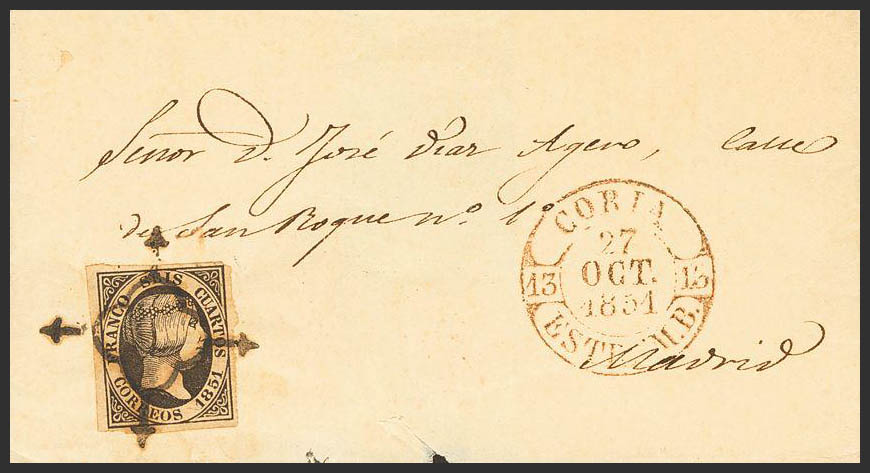 Señor D. José Diaz Agero, Calle
de San Roque nº 1º
Madrid
CORIA
27
OCT.
1851
13 13
ESTR. M. B.
FRANCO SEIS CUARTOS
CORREOS 1851